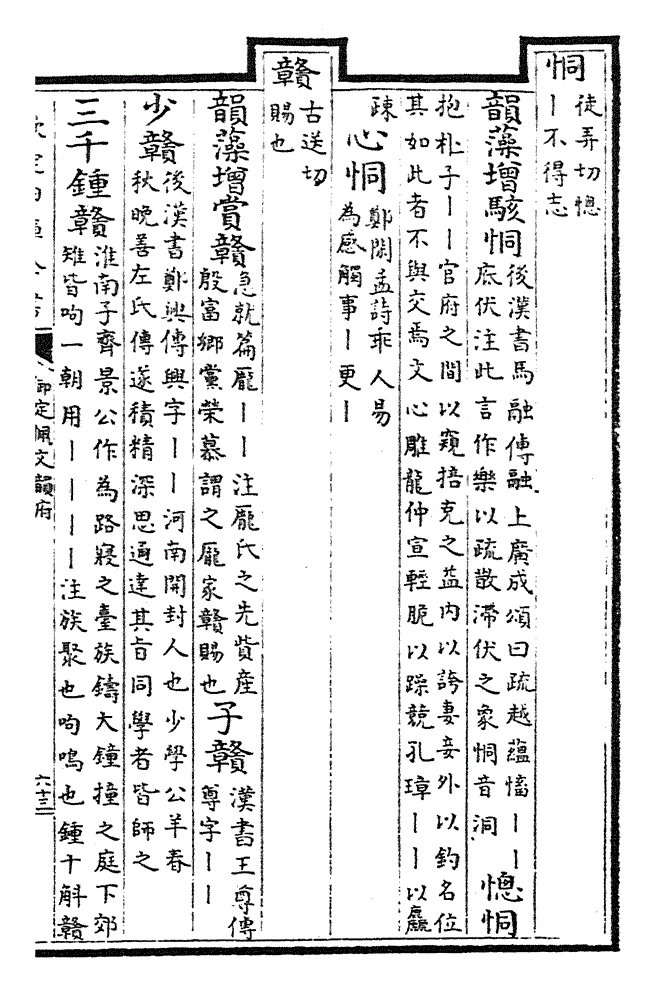 恫
徒弄切憁
丨不得志
韻藻增駭恫
後漢書馬融傳融上廣成頌曰疏越蘊慉丨丨
底伏注此言作樂以疏散滯伏之象恫音洞
憁恫
抱朴子丨丨官府之間以窺掊克之益内以誇妻妾外以釣名位
其如此者不與交焉文心雕龍仲宣輕脆以躁競孔璋丨丨以麤
疎
心恫
鄭閑孟詩乖人易
為感觸事丨更丨
贛
古送切
賜也
韻藻增賞贛
急就篇龐丨丨注龐氏之先貲産
殷富鄉黨榮慕謂之龐家贛賜也
子贛
漢書王尊傳
尊字丨丨
少贛
後漢書鄭興傳興字丨丨河南開封人也少學公羊春
秋晚善左氏傳遂積精深思通達其旨同學者皆師之
三千鍾贛
淮南子齊景公作為路寢之臺族鑄大鐘撞之庭下郊
雉皆呴一朝用丨丨丨丨注族聚也呴鳴也鍾十斛贛
欽定四庫全書
御定佩文韻府
六十三